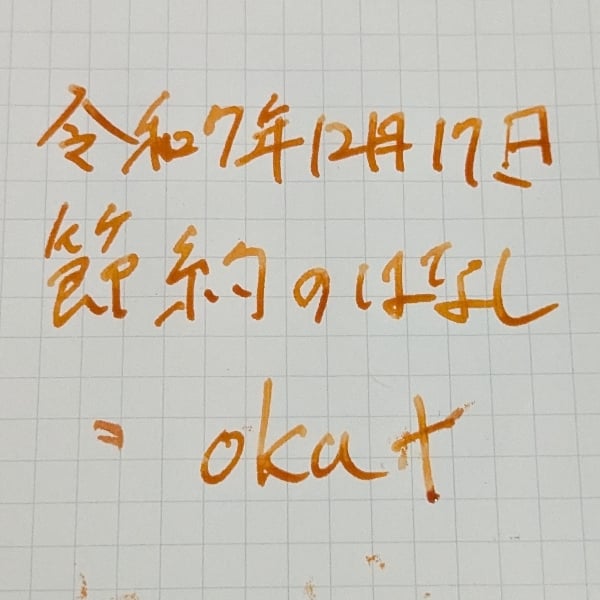 令和7年12月17日
節約のはなし
okat